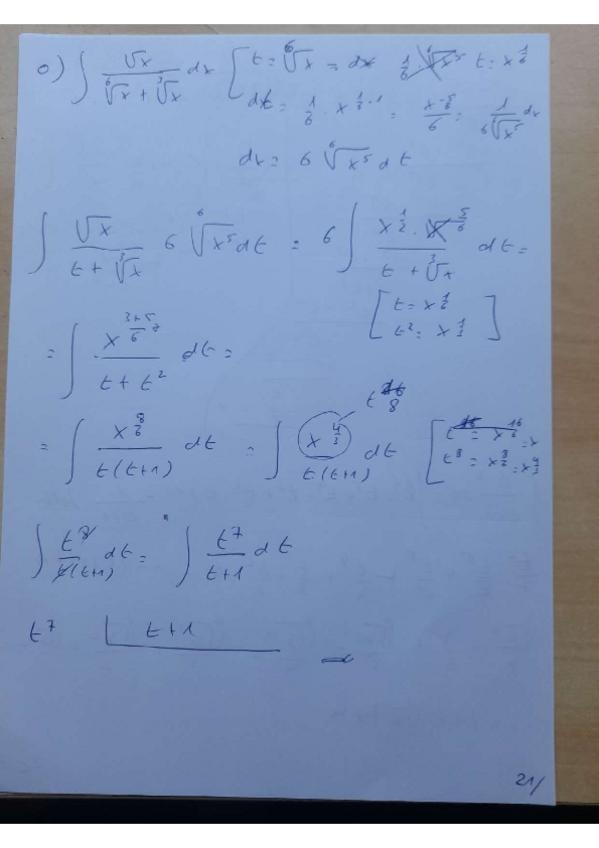 o) ∫ √x / (⁶√x + ³√x) dx [ t = ⁶√x = dx 1/6 ⁶√x⁵ t = x^(1/6)
dt = 1/6 · x^(1/6 - 1) = x^(-5/6) / 6 = 1 / (6 ⁶√x⁵) dx
dx = 6 ⁶√x⁵ dt
∫ √x / (t + ³√x) 6 ⁶√x⁵ dt = 6 ∫ x^(1/2) · x^(5/6) / (t + ³√x) dt =
[ t = x^(1/6)
t² = x^(1/3) ]
= ∫ x^((3+5)/6) / (t + t²) dt =
= ∫ x^(8/6) / (t(t+1)) dt = ∫ x^(4/3) / (t(t+1)) dt [ t^16 = x^(16/6) = x
t⁸
t⁸ = x^(8/6) = x^(4/3)
∫ t⁸ / (t(t+1)) dt = ∫ t⁷ / (t+1) dt
t⁷ t+1
21/